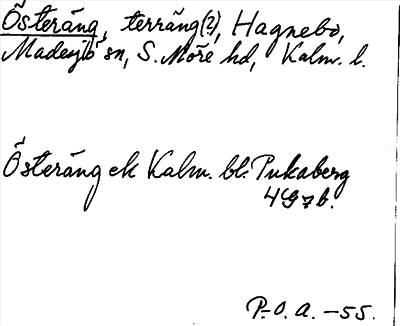 Österäng, terräng(?), Hagnebo,
Madesjö sn, S. Möre hd, Kalm. l.
Österäng ek Kalm. bl. Pukaberg
4G7b.
P.O.A. -55.